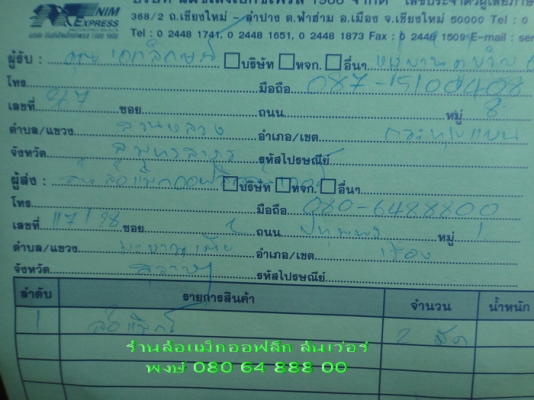 NIM EXPRESS
368/2 ถ.เชียงใหม่ - ลำปาง ต.ฟ้าฮ่าม อ.เมือง จ.เชียงใหม่ 50000 Tel : 0
Tel : 0 2448 1741, 0 2448 1651, 0 2448 1873 Fax : 0 2448 1509 E-mail : ser
ผู้รับ : คุณ บริษัท หจก. อื่นๆ
โทร มือถือ 087-1510408
เลขที่ 97 ซอย ถนน หมู่ 8
ตำบล/แขวง สวนหลวง อำเภอ/เขต กระทุ่มแบน
จังหวัด สมุทรสาคร รหัสไปรษณีย์
ผู้ส่ง : บริษัท หจก. อื่นๆ
โทร มือถือ 080-6488800
เลขที่ 117/98 ซอย ถนน หมู่ 1
ตำบล/แขวง อำเภอ/เขต เมือง
จังหวัด ลำปาง รหัสไปรษณีย์
ลำดับ รายการสินค้า จำนวน น้ำหนัก
1 ล้อแม็กซ์ 2
ร้านล้อแม็กออฟลิก ล้นเวอร์
พงษ์ 080 64 888 00